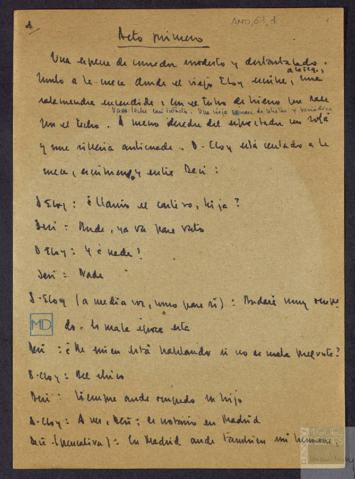 1
AMO, 61, 1
Acto primero
Una especie de comedor modesto y destartalado.
Junto a la mesa donde el viejo Eloy escribe, una
salamandra encendida; un
por el techo. A mano derecha del espectador un sofá
y una sillería anticuada. D. Eloy está sentado a la
mesa, escribiendo, y entra Desi:
D. Eloy: ¿Llamó el cartero, hija?
Desi: Ande, ya va para rato
D. Eloy: Y ¿nada?
Desi: Nada
D. Eloy (a media voz, como para sí): Andará muy ocupa
MD
do. Es mala época esta
Desi: ¿De quién está hablando si no es mala pregunta?
D. Eloy: Del chico
Desi: Siempre anda ocupado su hijo
D. Eloy: A ver, Desi; es notario en Madrid
Desi (pensativa): En Madrid anda también mi hermano;